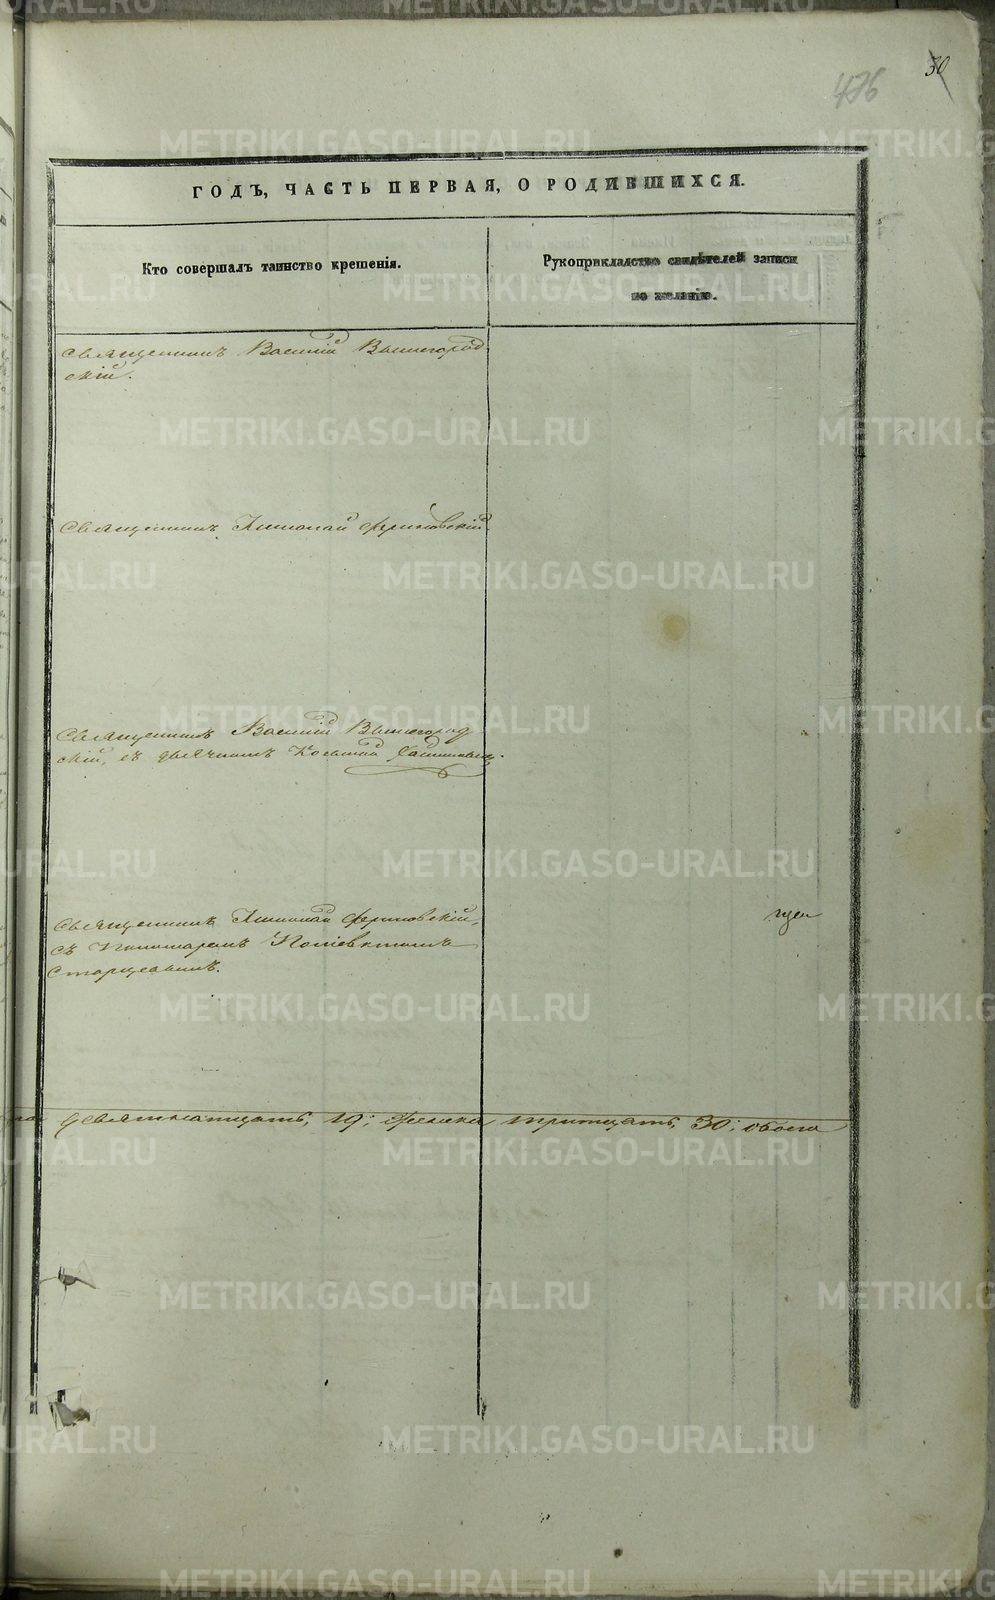 30
476
ГОДЪ, ЧАСТЬ ПЕРВАЯ, О РОДИВШИХСЯ.
Кто совершалъ таинство крещенія.
Рукоприкладство свидѣтелей записи
по желанію.
Священникъ Василій Вышегород
скій.
Священникъ Николай
Священникъ Василій Вышегород
скій, съ дьячкомъ Козьмой
Священникъ Николай
съ Пономаремъ Поліевктомъ
Старцевымъ.
девятнатцать, 19; женска тритцать, 30; обоего
METRIKI.GASO-URAL.RU